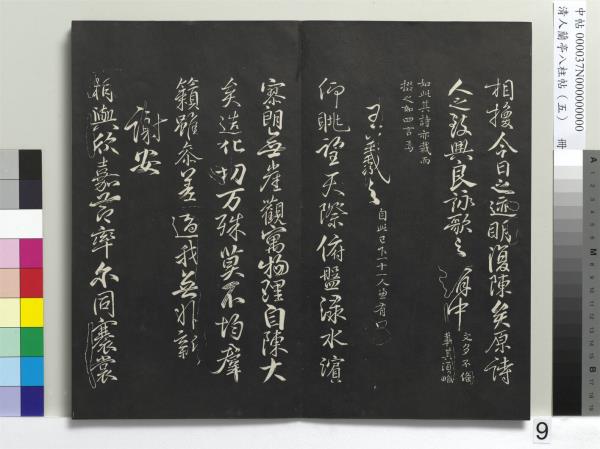 中帖 000037N000000000
清人蘭亭八柱帖（五） 冊
相擾今日之迹明復陳矣原詩
人之致興良詠歌之有由
文多不備
載其
如此其詩亦裁而
掇之如四言焉
王羲之
自此已下十一人
仰眺望天際俯盤淥水濱
寥朗無崖觀寓物理自陳大
矣造化功万殊莫不均群
籟雖參差適我無非新
謝安
相與欣嘉節率尔同褰裳
9